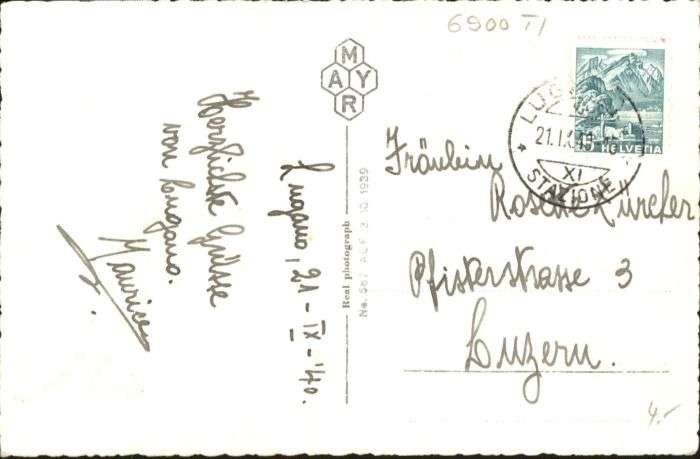 6900 TI
MAYR
Herzlichste Grüsse
von Lugano.
Maurice
Lugano, 21-IX-'40.
Real photograph
No. 567 ACF 3 10 1939
LUGANO
21.IX.40
XI
STAZIONE
HELVETIA
Fräulein
Rosa
Pfisterstrasse 3
Luzern.
4.-